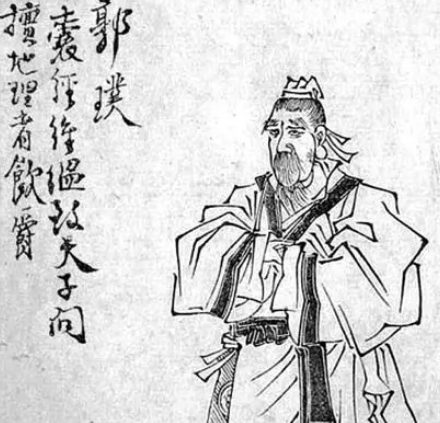 郭璞
囊經緯縕致天子問
擅地理者飲一爵